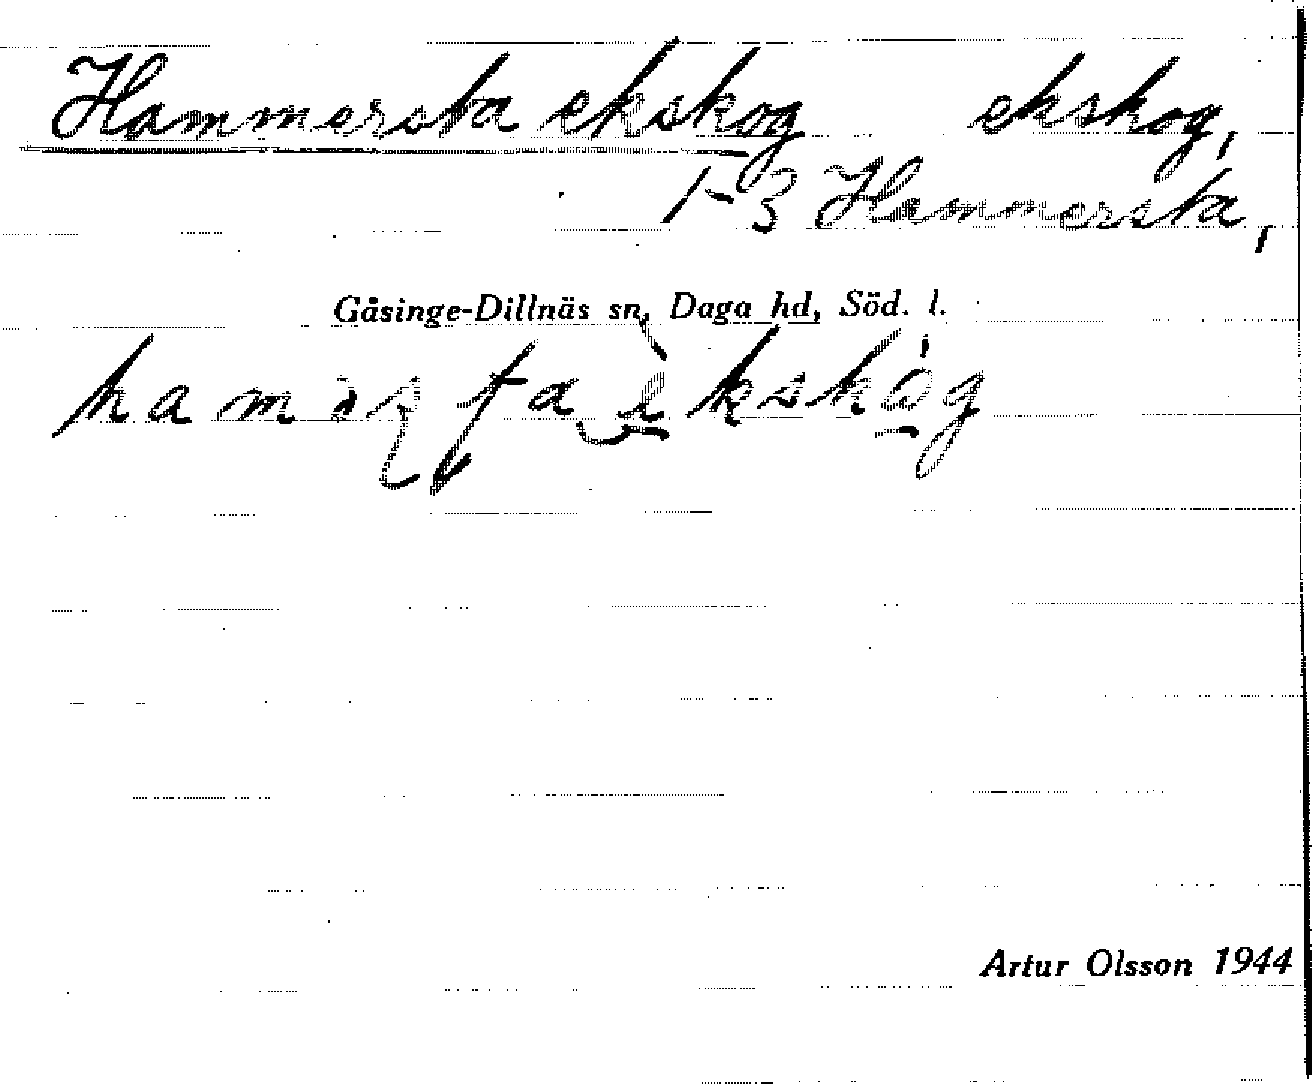 Hammersta ekskog ekskog,
1-3 Hammersta,
Gåsinge-Dillnäs sn, Daga hd, Söd. l.
Artur Olsson 1944